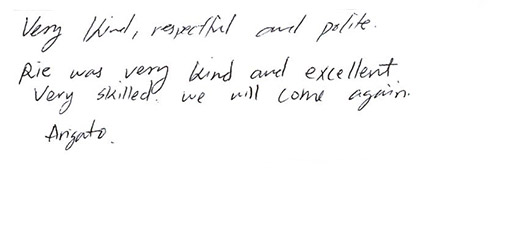 Very kind, respectful and polite.
Rie was very kind and excellent.
Very skilled. we will come again.
Arigato.